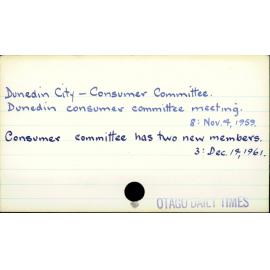 Dunedin City – Consumer Committee.
Dunedin consumer committee meeting.
8: Nov. 4, 1959.
Consumer committee has two new members.
3: Dec. 19, 1961.
OTAGO DAILY TIMES